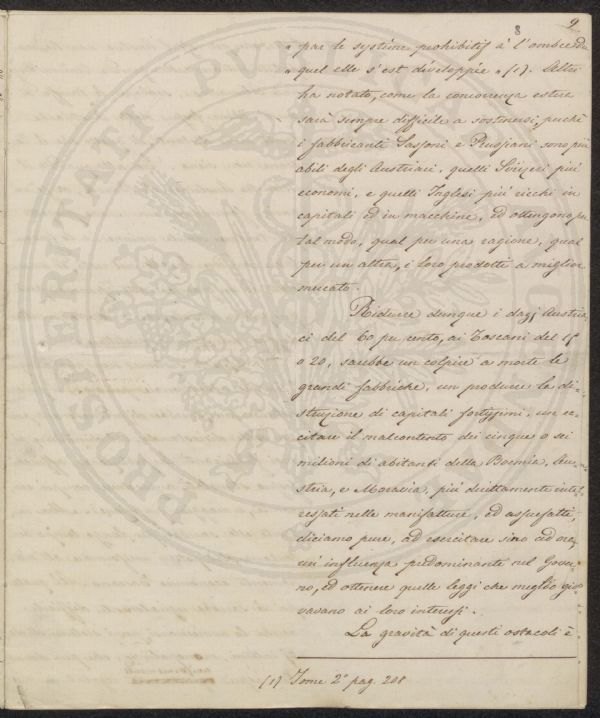 8
9
" par le système prohibitif à l'ombre du
" quel elle s'est développée " (1). Altri
ha notato, come la concorrenza estera
sarà sempre difficile a sostenersi, perché
i fabbricanti Sassoni e Prussiani sono più
abili degli Austriaci, quelli Svizzeri più
economi, e quelli Inglesi più ricchi in
capitali ed in macchine, ed ottengono per
tal modo, qual per una ragione, qual
per un altra, i loro prodotti a miglior
mercato.
Ridurre dunque i dazj Austria-
ci del 60 per cento, ai Toscani del 15
o 20, sarebbe un colpire a morte le
grandi fabbriche, un produrre la di-
struzione di capitali fortissimi, un ec-
citare il malcontento dei cinque o sei
milioni di abitanti della Boemia, Au-
stria, e Moravia, più direttamente inte-
ressati nelle manifatture, ed assuefatti,
diciamo pure, ad esercitare sino ad ora,
un'influenza predominante nel Gover-
no, ed ottenere quelle leggi che meglio gio-
vavano ai loro interessi.
La gravità di questi ostacoli è
(1) Tome 2° pag. 208
PROSPERITATI PUBLICAE